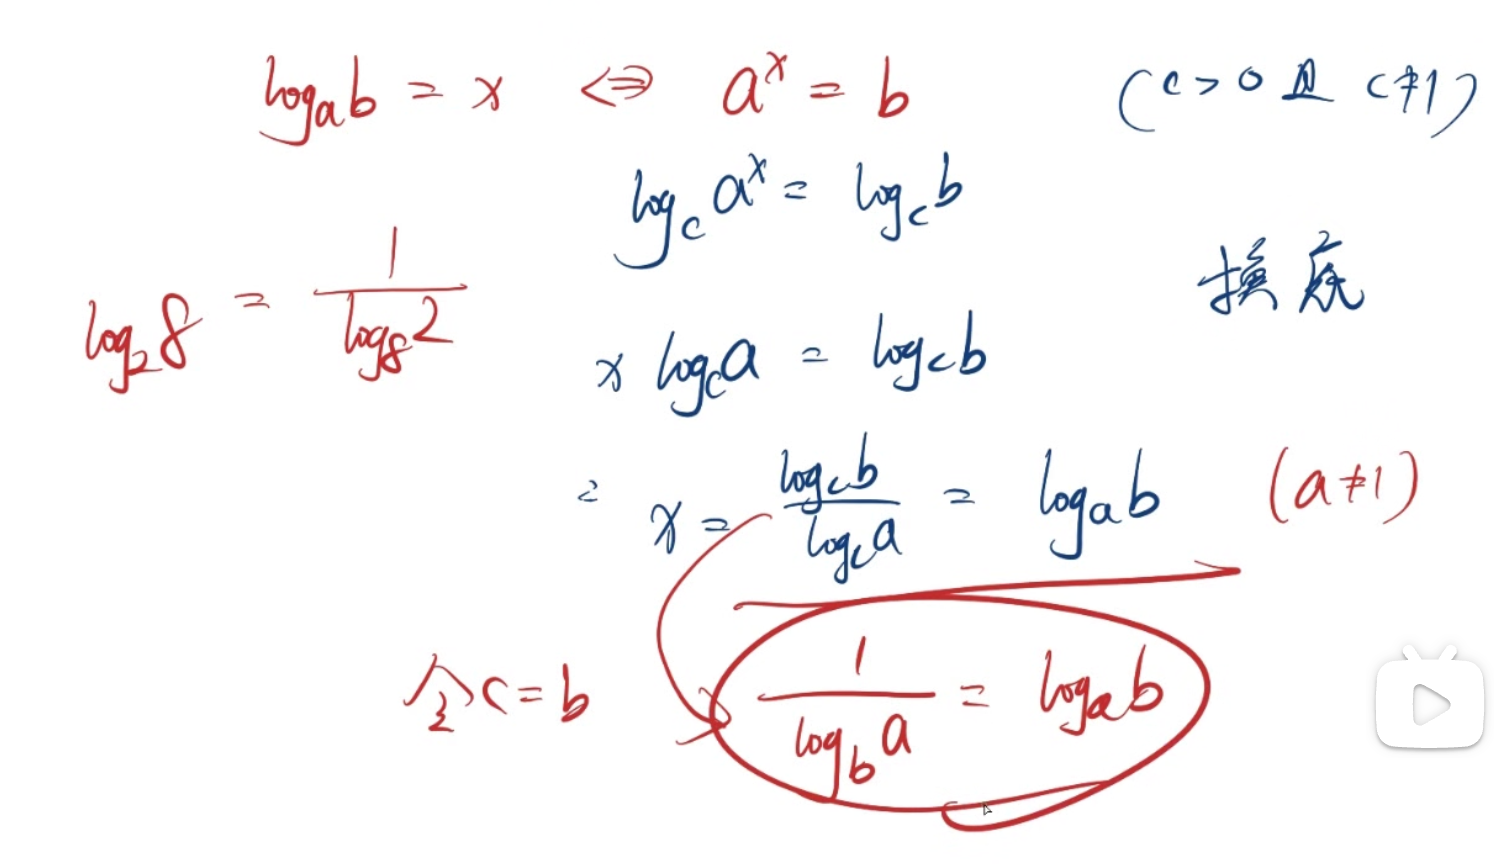 logₐb = x ⇔ aˣ = b (c > 0 且 c ≠ 1)
log_c aˣ = log_c b
换底
log₂8 = 1/log₈2
x log_c a = log_c b
∴ x = log_c b / log_c a = logₐb (a ≠ 1)
令 c = b 1/log_b a = logₐb